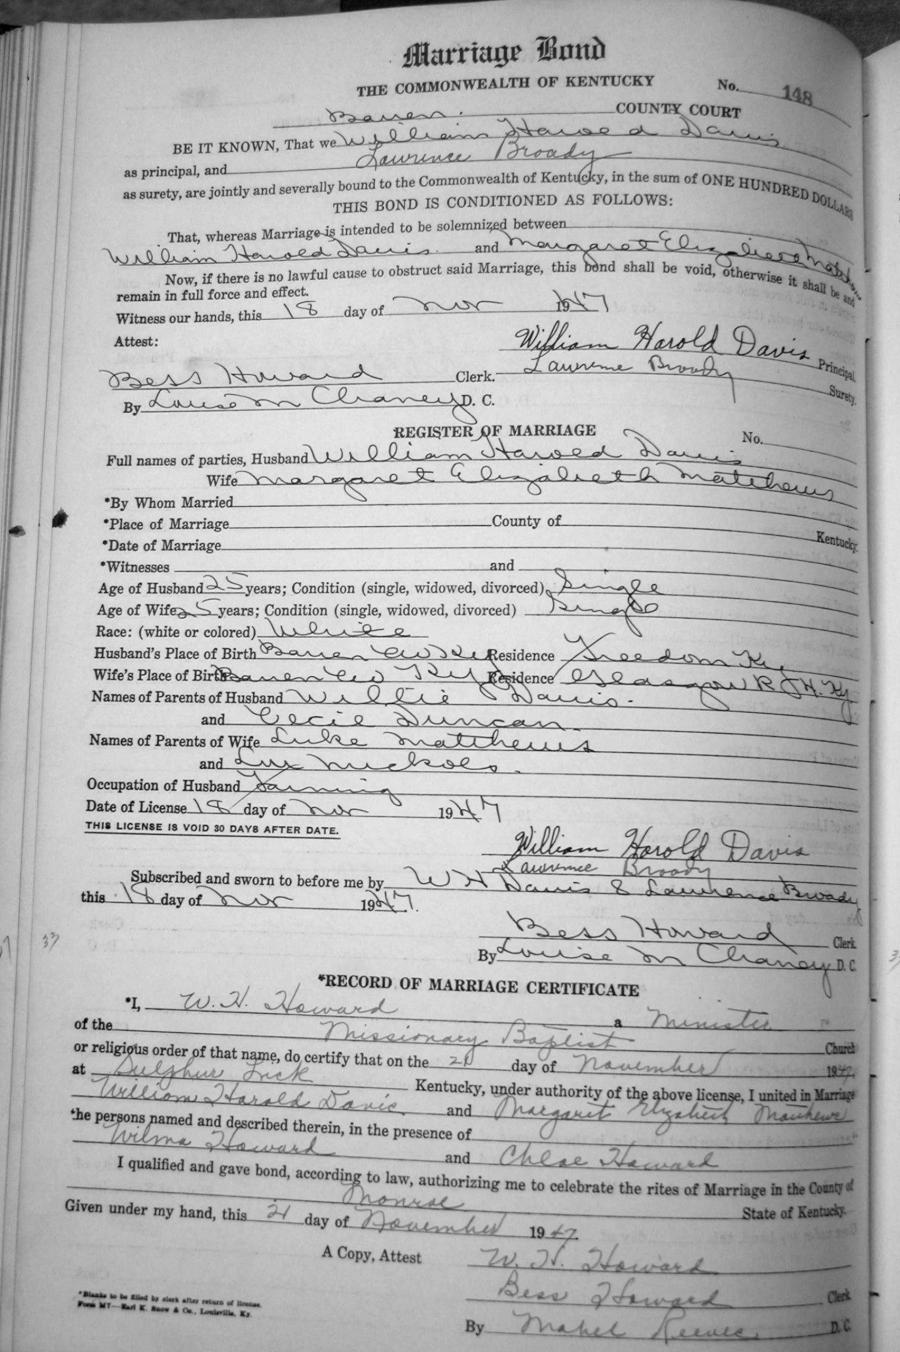 Marriage Bond
THE COMMONWEALTH OF KENTUCKY No. 148
Barren COUNTY COURT
BE IT KNOWN, That we William Harold Davis
as principal, and Lawrence Broady
as surety, are jointly and severally bound to the Commonwealth of Kentucky, in the sum of ONE HUNDRED DOLLARS
THIS BOND IS CONDITIONED AS FOLLOWS:
That, whereas Marriage is intended to be solemnized between
William Harold Davis and Margaret Elizabeth Matthews
Now, if there is no lawful cause to obstruct said Marriage, this bond shall be void, otherwise it shall be and
remain in full force and effect.
Witness our hands, this 18 day of Nov 1947
Attest: William Harold Davis Principal,
Bess Howard Clerk. Lawrence Broady Surety.
By Louise M Chaney D. C.
REGISTER OF MARRIAGE No.
Full names of parties, Husband William Harold Davis
Wife Margaret Elizabeth Matthews
*By Whom Married
*Place of Marriage County of Kentucky.
*Date of Marriage
*Witnesses and
Age of Husband 25 years; Condition (single, widowed, divorced) Single
Age of Wife 25 years; Condition (single, widowed, divorced) Single
Race: (white or colored) White
Husband's Place of Birth Barren Co Ky Residence Freedom Ky
Wife's Place of Birth Barren Co Ky Residence Glasgow R Ky
Names of Parents of Husband Willie Davis.
and Cecil Duncan
Names of Parents of Wife Luke Matthews
and Nickols.
Occupation of Husband Farming
Date of License 18 day of Nov 1947
THIS LICENSE IS VOID 30 DAYS AFTER DATE.
William Harold Davis
Lawrence Broady
Subscribed and sworn to before me by W H Davis & Lawrence Broady
this 18 day of Nov 1947.
33
Bess Howard Clerk
By Louise M Chaney D. C.
*RECORD OF MARRIAGE CERTIFICATE
*I, W. H. Howard a Minister
of the Missionary Baptist Church
or religious order of that name, do certify that on the 21 day of November 1947.
at Sulphur Lick Kentucky, under authority of the above license, I united in Marriage
William Harold Davis and Margaret Elizabeth Matthews
the persons named and described therein, in the presence of
Wilma Howard and Chloe Howard
I qualified and gave bond, according to law, authorizing me to celebrate the rites of Marriage in the County of
Monroe State of Kentucky.
Given under my hand, this 21 day of November 1947.
A Copy, Attest W. H. Howard
Bess Howard Clerk
By Mabel Reeves D. C.
*Blanks to be filled by clerk after return of license.
Form M7—Earl K. Snow & Co., Louisville, Ky.